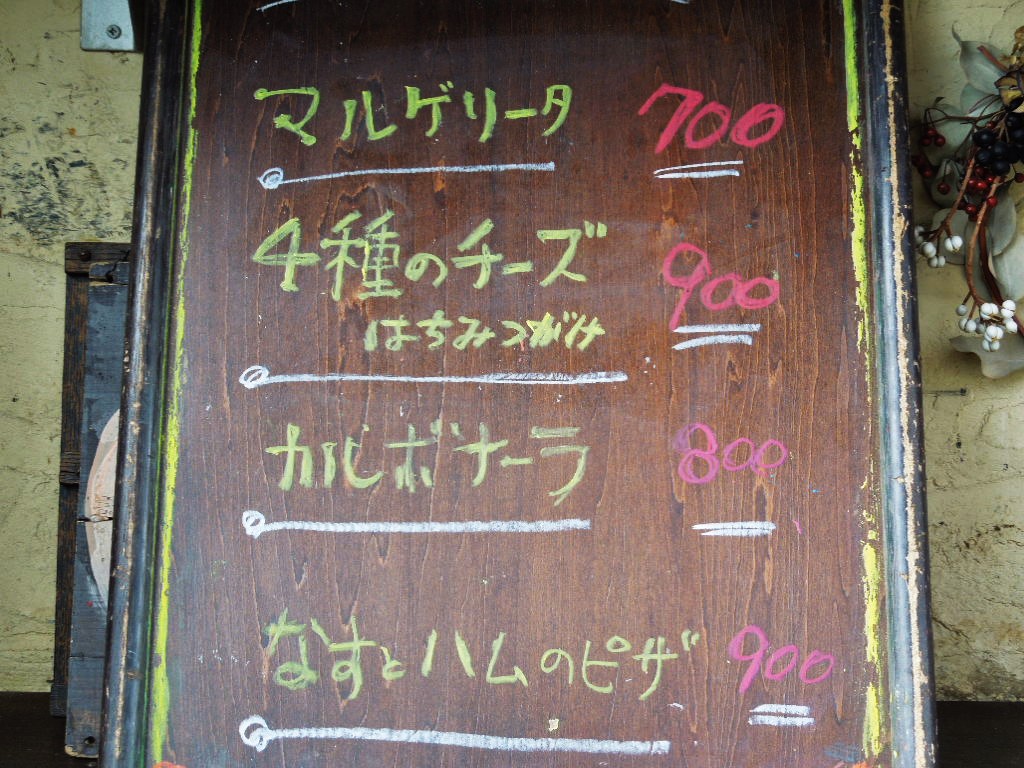 マルゲリータ 700
4種のチーズ 900
はちみつがけ
カルボナーラ 800
なすとハムのピザ 900